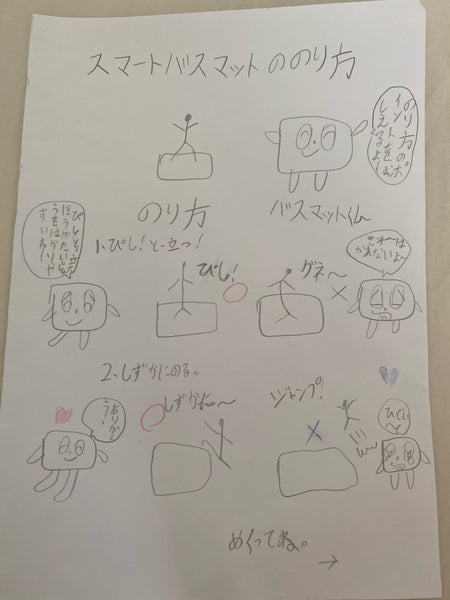 スマートバスマットののり方
のり方のポ
イントをお
しえるよ!
バスマットくん
のり方
1.ぴし!と立つ!
ほうがたい
うをはかりや
すい
ぴし!
グネ〜
ないよ〜
2.しずかにのる。
ありがと
う!
しずかに〜
ジャンプ!
めくってね。
→